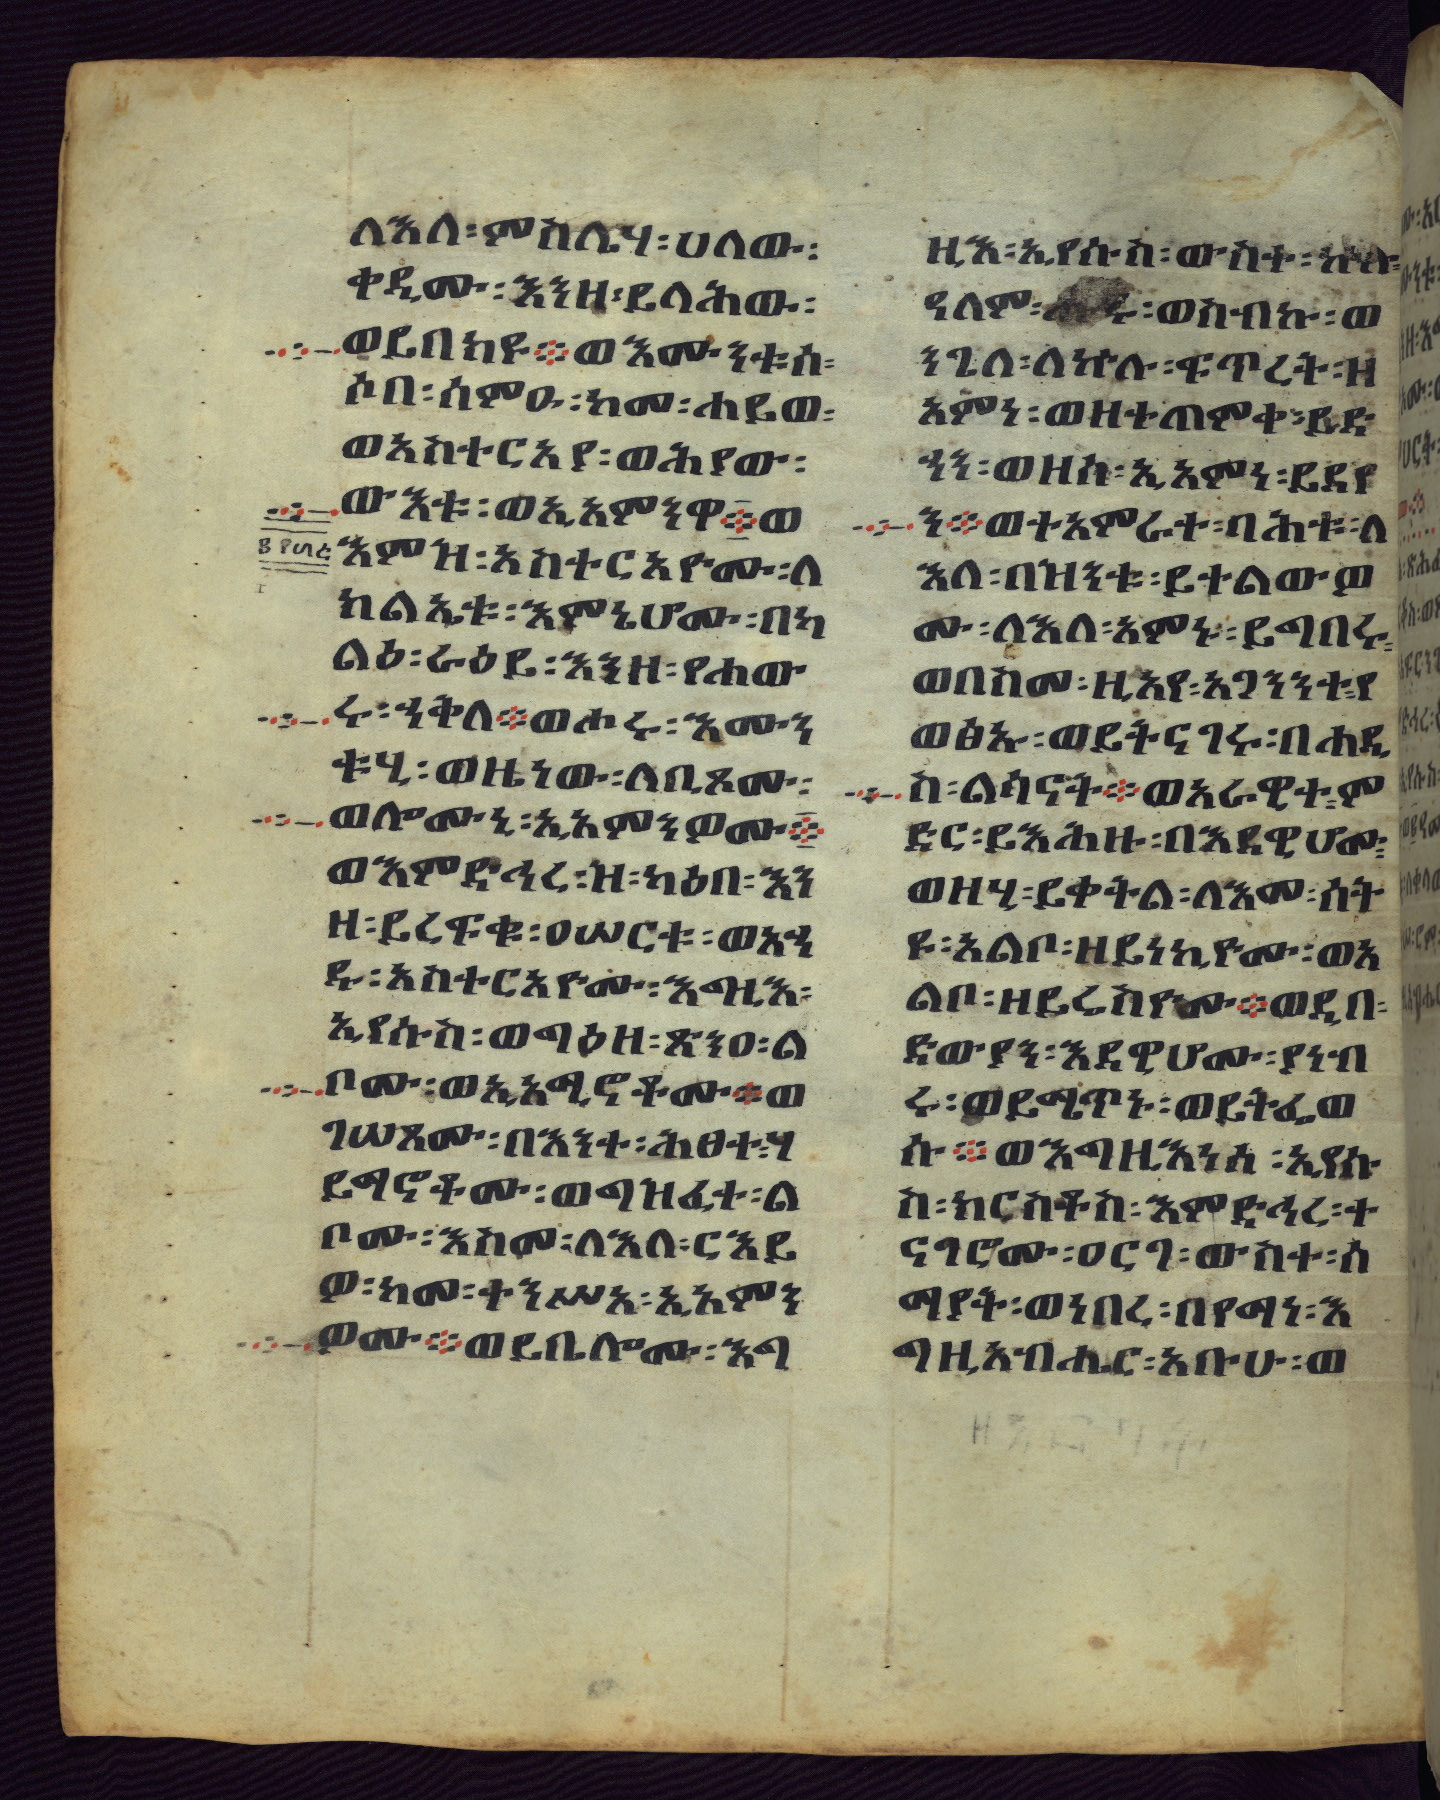 ለእለ፡ምስሌሃ፡ሀለው፡
ቀዲሙ፡እንዘ፡ይላሕው፡
ወይበክዩ፨ወእሙንቱሰ፡
ሶበ፡ሰምዑ፡ከመ፡ሐይወ፡
ወአስተርአየ፡ወሕያው፡
ውእቱ፡ወኢአምንዎ፨ወ
እምዝ፡አስተርአዮሙ፡ለ
ክልኤቱ፡እምኔሆሙ፡በካ
ልዕ፡ራዕይ፡እንዘ፡የሐው
ሩ፡ሐቅለ፨ወሖሩ፡እሙን
ቱሂ፡ወዜነው፡ለቢጾሙ፡
ወሎሙኒ፡ኢአምንዎሙ፨
ወእምድኅረ፡ዝ፡ካዕበ፡እን
ዘ፡ይረፍቁ፡ዐሠርቱ፡ወአሐ
ዱ፡አስተርአዮሙ፡እግዚእ፡
ኢየሱስ፡ወግዕዘ፡ጽንዐ፡ል
ቦሙ፡ወኢአሚኖቶሙ፨ወ
ገሠጾሙ፡በእንተ፡ሕፀተ፡ሃ
ይማኖቶሙ፡ወግዝፈተ፡ል
ቦሙ፡እስመ፡ለእለ፡ርእይ
ዎ፡ከመ፡ተንሥአ፡ኢአምን
ዎሙ፨ወይቤሎሙ፡እግ
ዚእ፡ኢየሱስ፡ውስተ፡ኵሉ፡
ዓለም፡ወስብኩ፡ወ
ንጌለ፡ለኵሉ፡ፍጥረት፡ዘ
አምነ፡ወዘተጠምቀ፡ይድ
ኅን፡ወዘሰ፡ኢአምነ፡ይደየ
ን፨ወተአምራት፡ባሕቱ፡ለ
እለ፡በዝንቱ፡ይተልውዎ
ሙ፡ለእለ፡አምኑ፡ይግበሩ፡
ወበስመ፡ዚአየ፡አጋንንተ፡የ
ወፅኡ፡ወይትናገሩ፡በሐዲ
ስ፡ልሳናት፨ወአራዊተ፡ም
ድር፡ይእሕዙ፡በእደዊሆሙ፡
ወዘሂ፡ይቀትል፡ለእመ፡ሰት
ዩ፡አልቦ፡ዘይነክዮሙ፡ወአ
ልቦ፡ዘይሬስዮሙ፨ወዲበ፡
ድውያን፡እደዊሆሙ፡ያነብ
ሩ፡ወይሜጥኑ፡ወይትፌወ
ሱ፨ወእግዚእነሰ፡ኢየሱ
ስ፡ክርስቶስ፡እምድኅረ፡ተ
ናገሮሙ፡ዐርገ፡ውስተ፡ሰ
ማያት፡ወነበረ፡በየማነ፡እ
ግዚአብሔር፡አቡሁ፡ወ